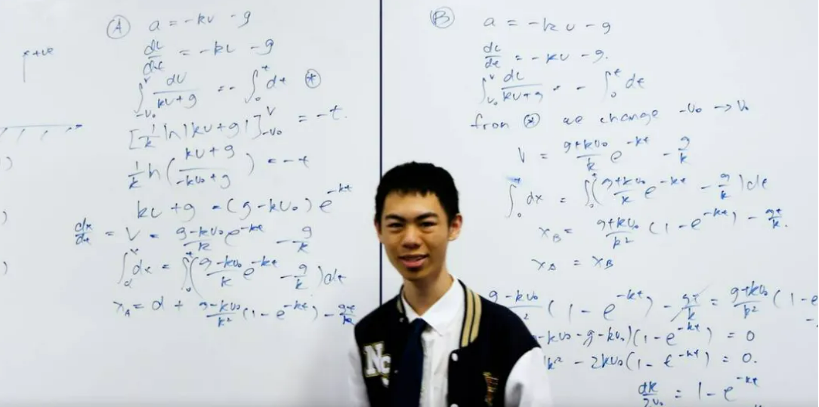 +ve
Ⓐ a = -kv - g
dv/dt = -kv - g
∫_{-v₀}^{v} dv/(kv+g) = -∫₀^t dt ⊛
[1/k ln|kv+g|]_{-v₀}^{v} = -t.
1/k ln((kv+g)/(-kv₀+g)) = -t
kv + g = (g-kv₀)e^{-kt}
dx/dt = v = (g-kv₀)/k e^{-kt} - g/k
∫_d^x dx = ∫₀^t ((g-kv₀)/k e^{-kt} - g/k) dt
x_A = d + (g-kv₀)/k² (1-e^{-kt}) - gt/k
Ⓑ a = -kv - g
dv/dt = -kv - g.
∫_{v₀}^{v} dv/(kv+g) = -∫₀^t dt
from ⊛ we change -v₀ → v₀
v = (g+kv₀)/k e^{-kt} - g/k
∫₀^x dx = ∫₀^t ((g+kv₀)/k e^{-kt} - g/k) dt
x_B = (g+kv₀)/k² (1-e^{-kt}) - gt/k.
x_A = x_B
g-kv₀ (1-e^{-kt}) - gt/k = (g+kv₀)/k² (1-e
-kv₀-g-kv₀)(1-e^{-kt}) = 0
k² - 2kv₀(1-e^{-kt}) = 0.
dk/2v₀ = 1-e^{-kt}
Nc